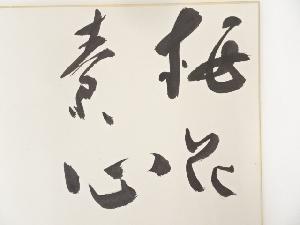 梅花
素心